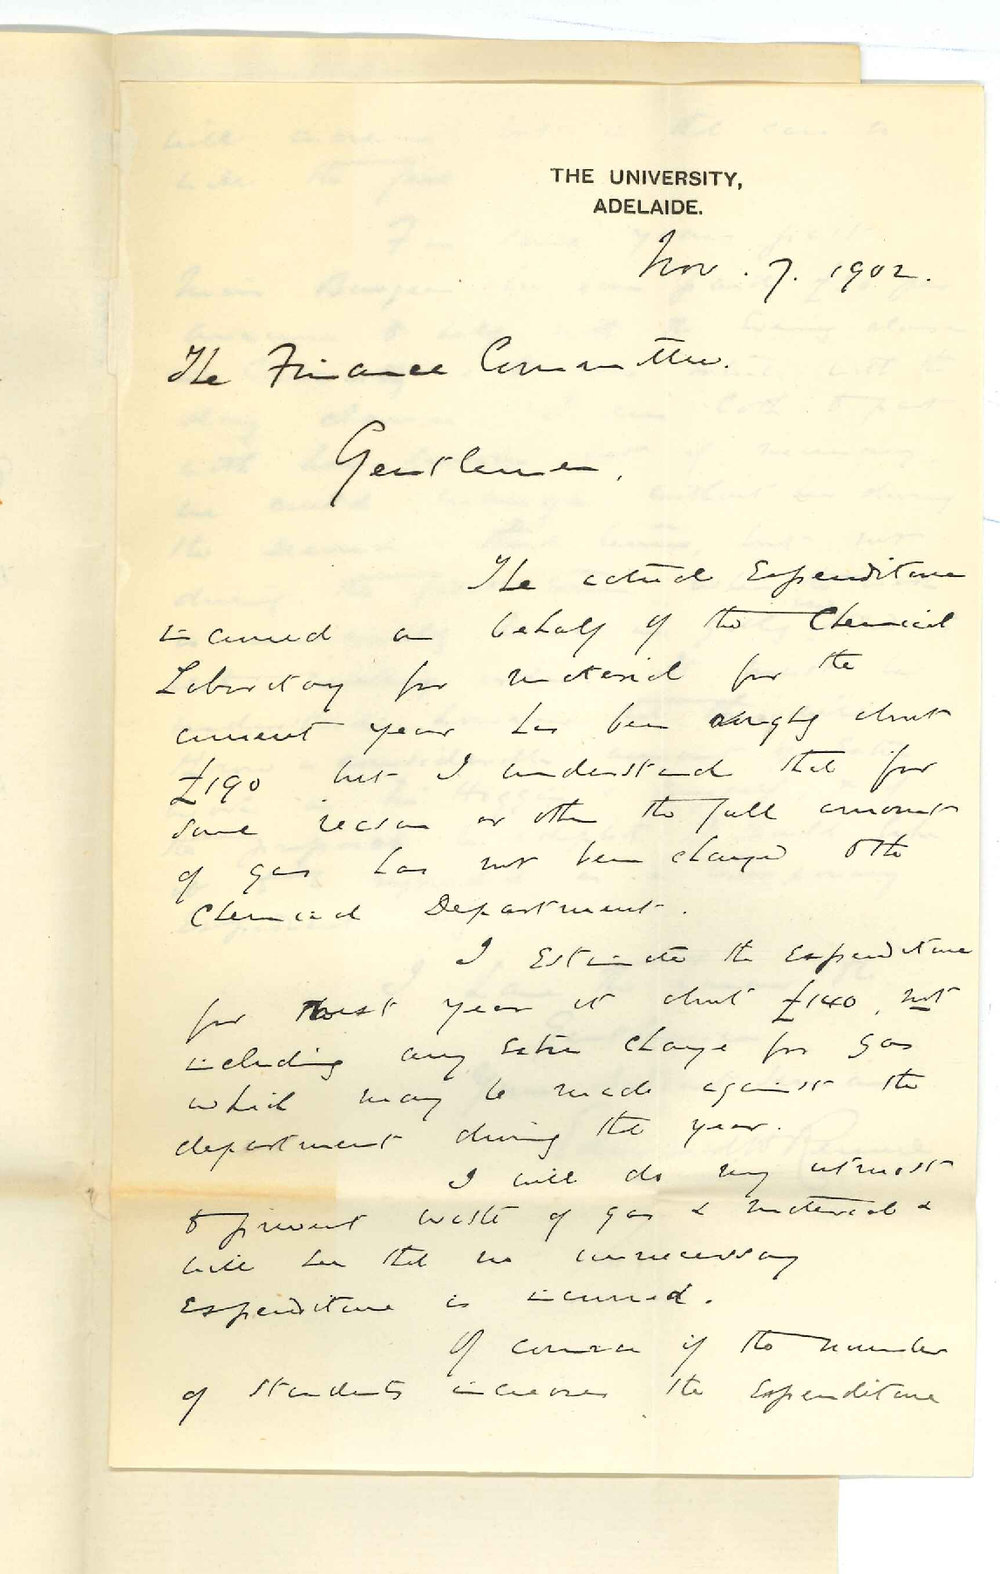 THE UNIVERSITY,
ADELAIDE.
Nov. 7. 1902.
The Finance Committee.
Gentlemen,
The actual Expenditure
incurred on behalf of the Chemical
Laboratory for material for the
current year has been roughly about
£190 but I understand that for
some reason or other the full amount
of gas has not been charged to the
Chemical Department.
I Estimate the expenditure
for next year at about £140, not
including any extra charge for gas
which may be made against the
department during the year.
I will do my utmost
to prevent waste of gas & material &
will see that no unnecessary
Expenditure is incurred.
Of course if the number
of students increases the Expenditure